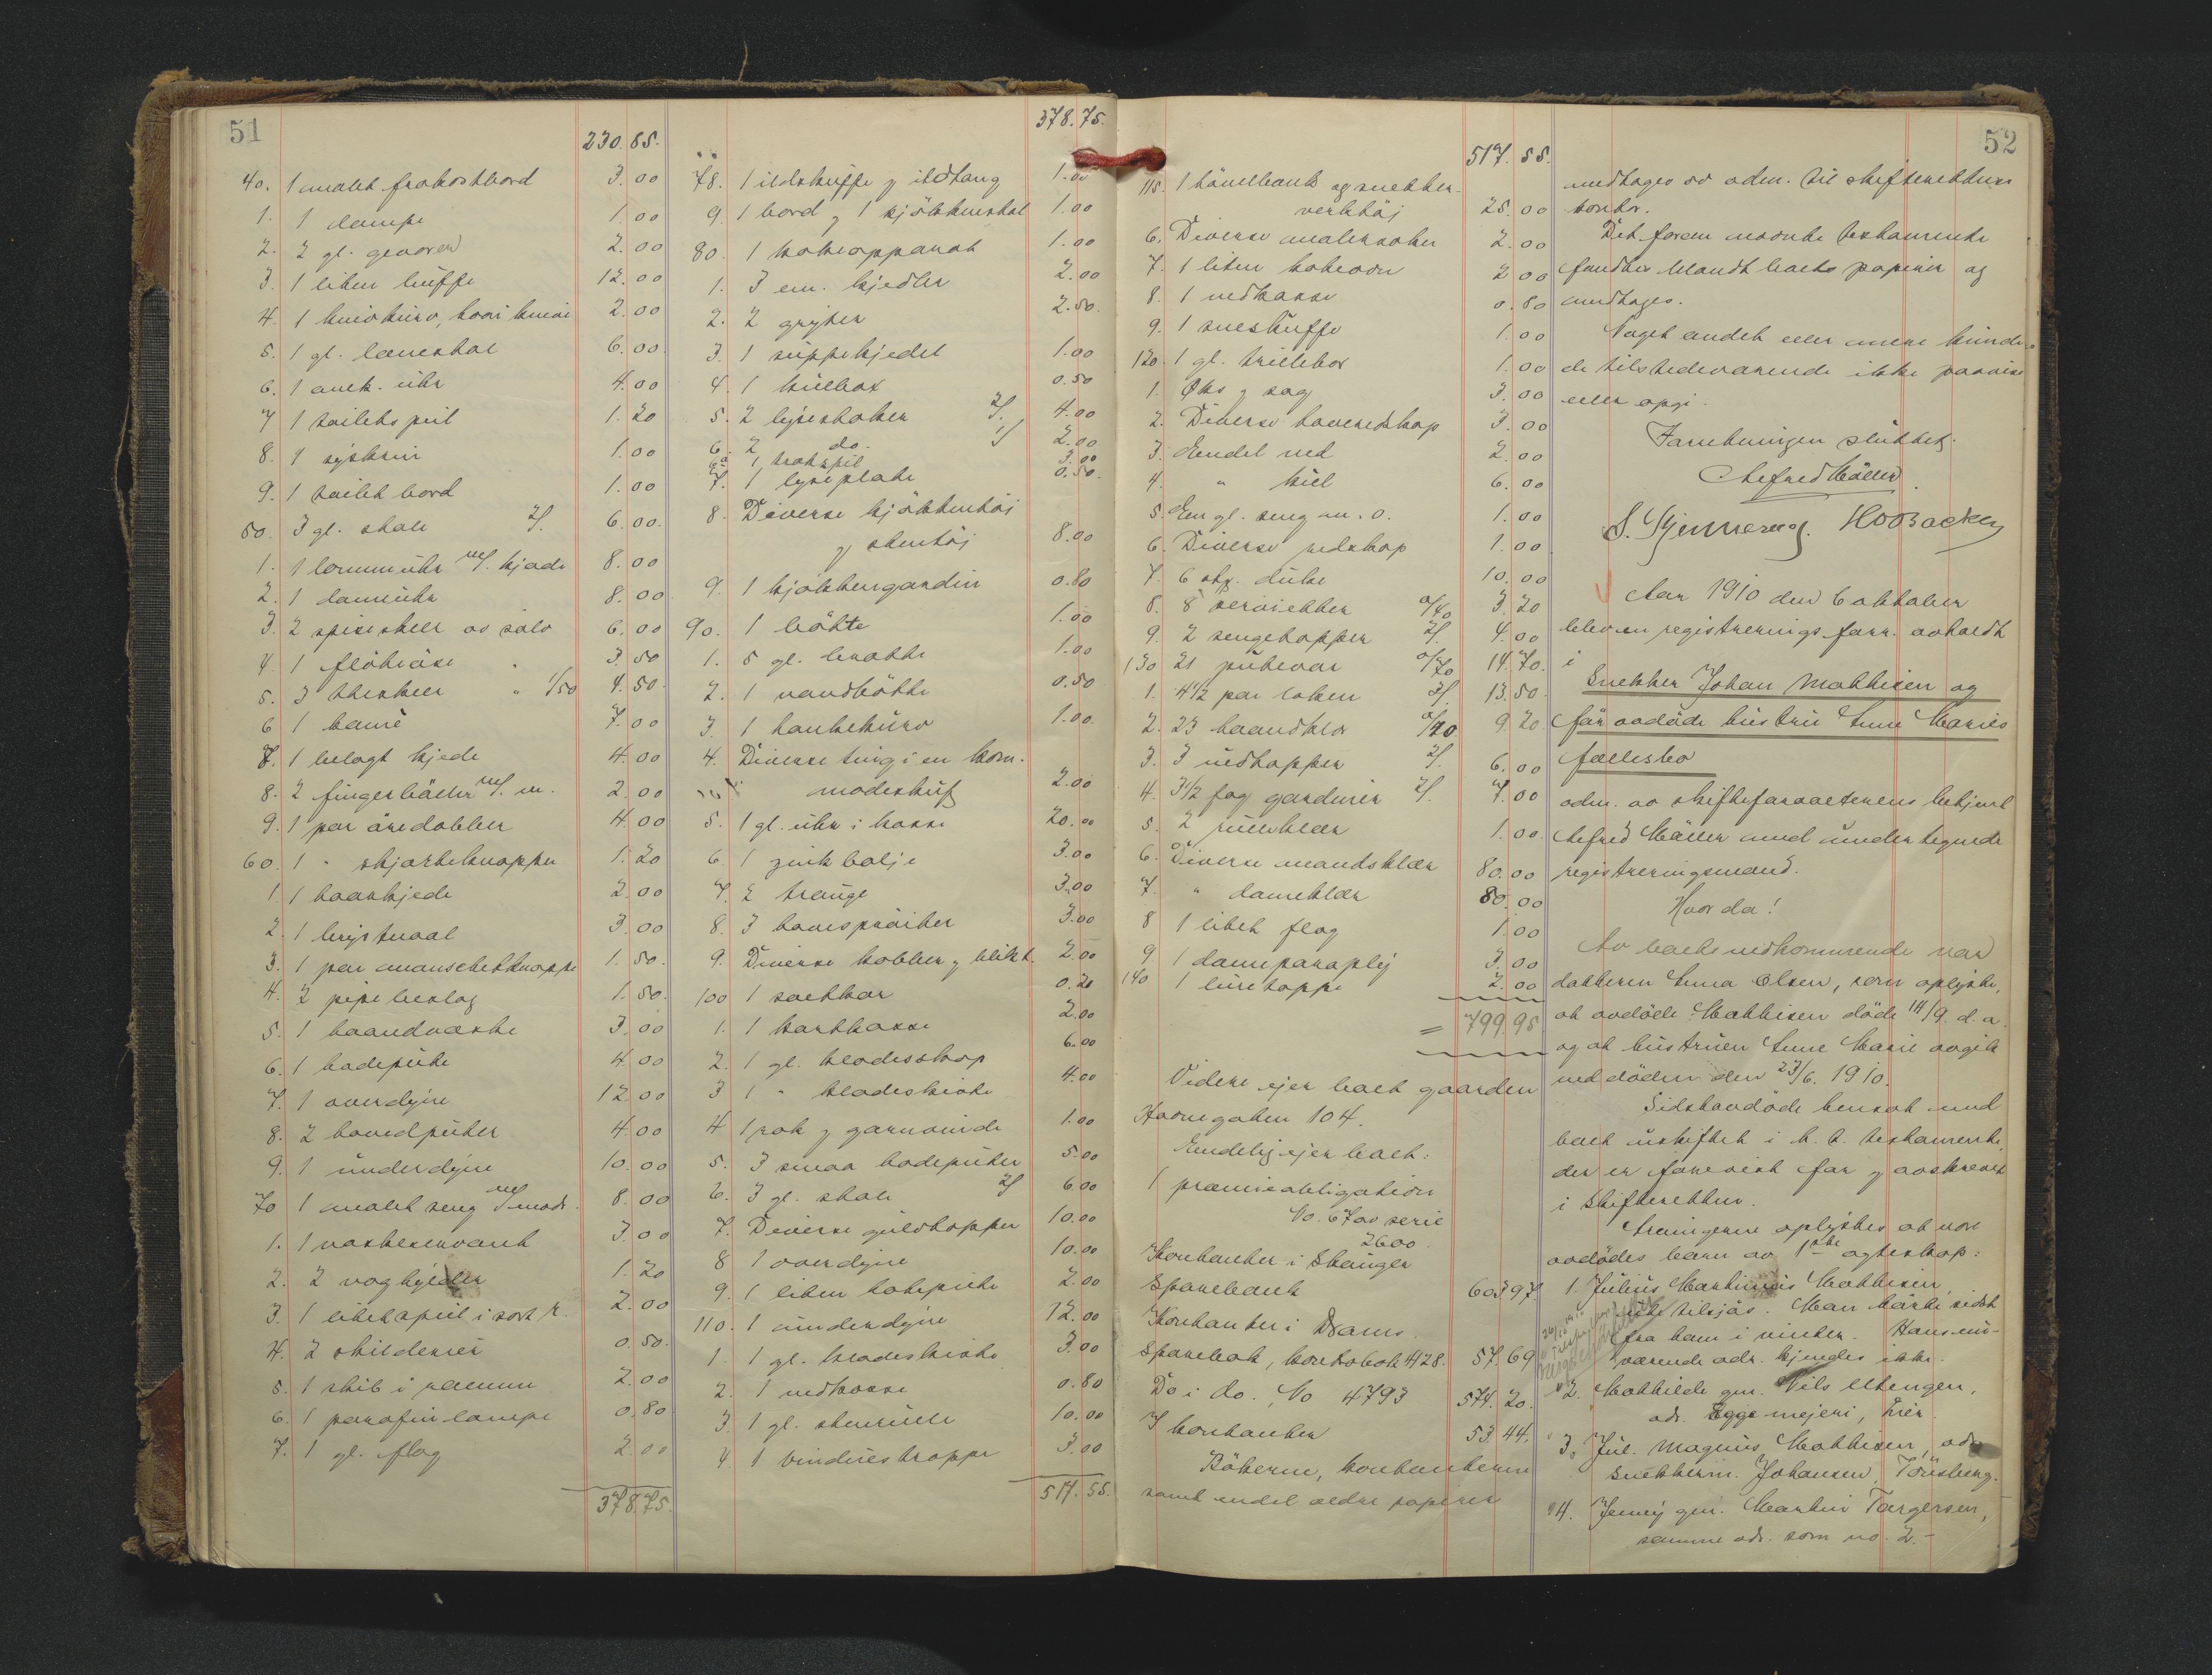 51
230.85.
40. 1 malet frokostbord 3.00
1. 1 lampe 1.00
2. 2 gl. gevorer 2.00
3. 1 liten kuffe 12.00
4. 1 knivkurv, 2.00
5. 1 gl. lænestol 6.00
6. 1 amk. uhr 4.00
7 1 toiletspeil 1.20
8. 1 syskrin 1.00
9. 1 toilet bord 1.00
50. 3 gl. stole 2/. 6.00.
1. 1 lommeuhr m/. kjæde 8.00
2. 1 dameuhr 8.00
3. 2 spiseskeer av sølv 6.00
4. 1 fløteøse " 3.50
5. 3 theskeer " 1/50 4.50.
6 1 7.00
7. 1 belagt kjede 4.00
8. 2 fingerbøller m/. m. 2.00
9. 1 par øredobber 4.00
60. 1 " skjorteknapper 1.20
1. 1 haarkjede 2.00
2. 1 brystnaal 3.00
3. 1 par manschetknapper 1.50.
4. 2 pipebeslag 1.50.
5. 1 haandvæske 3.00
6. 1 hodepute 4.00
7. 1 overdyne 12.00
8. 2 hovedputer 4.00
9. 1 underdyne 10.00
70 1 malet seng m/madr. 8.00
1. 1 vaskeservant 3.00
2. 2 1.20
3. 1 litet speil i sort r. 2.00
4. 2 skilderier 0.50.
5. 1 skib i ramme 2.00
6. 1 parafinlampe 0.80
7. 1 gl. flag 2.00
378.75.
378.75.
78. 1 ildskuffe & ildtang 1.00
9. 1 bord & 1 kjøkkenstol 1.00
80. 1 kokeapparat 1.00
1. 3 em. kjedler 2.00
2. 2 gryter 2.50.
3. 1 suppekjedel 1.00
4. 1 kulbox 0.50
5. 2 lysestaker 2/. 4.00
6. 2 do. 1/ 2.00
6a 1 3.00
7. 1 lyseplate 0.50.
8. Diverse kjøkkentøi
& stentøi 8.00
9. 1 kjøkkengardin 0.80
90. 1 bøtte 1.00
1. 5 gl. 1.00
2. 1 vandbøtte 0.50
3. 1 hankekurv 1.00.
4. Diverse ting i en kom-
modeskuf 2.00
5. 1 gl. uhr i kasse 20.00
6. 1 zink balje 3.00
7. 2 trauge 3.00
8. 3 3.00
9. Diverse kobber & blikt. 2.00
100 1 saltkar 0.20
1. 1 2.00
2. 1 gl. klædesskap 6.00
3 1 " klædeskiste 4.00
4 1 rok & garnvinde 1.00
5. 3 smaa hodeputer 5.00
6. 3 gl. stole 2/ 6.00
7. Diverse gulvtepper 10.00
8 1 overdyne 10.00
9. 1 liten hodepute 2.00
110. 1 underdyne 12.00
1. 1 gl. klædeskiste 3.00
2. 1 vedkasse 0.80
3. 1 gl. 10.00
4. 1 vinduestrappe 3.00
517.55.
517.55.
115. 1 høvelbænk og snekker-
verktøj 25.00
6. Diverse malersaker 2.00
7. 1 liten kokeovn 2.00
8. 1 vedkasse 0.80
9. 1 sneskuffe 1.00
120. 1 gl. trillebør 1.00
1. Øks & sag 3.00
2. Diverse haveredskap 3.00
3. Endel ved 2.00
4. " kul 6.00
5. En gl. seng m. o. 1.00
6. Diverse redskap 1.00
7. 6 stk. duke 10.00
8. 8 servietter a/40 3.20
9. 2 sengetepper 2/. 4.00
130 21 putevar a/70 14.70.
1. 4½ par laken 3/. 13.50
2. 23 haandklær a/40 9.20
3. 3 uldtepper 2/. 6.00
4. 3½ fag gardiner 2/. 7.00
5. 2 rulleklær 1.00
6. Diverse mandsklær 80.00
7. " dameklær 80.00
8 1 litet flag 1.00
9 1 dameparaply 3.00
140 1 2.00
= 799.95
Videre ejer boet gaarden
Havnegaten 104.
Endelig ejer boet:
1 præmieobligation
No. 67 av serie
2600.
Kontanter i Skauger
Sparebank 603 97.
Kontanter i Drams.
Sparebak, kontrabok 4128. 57.69
Do i do. No 4793 574.20.
I kontanter 53.44.
Bøkerne, kontanterne
samt endel ældre papirer
52
medtages av adm. til skifterettens
kontor.
Det foran nævnte testamente
fandtes blandt boets papirer og
medtages.
Noget andet eller mere kunde
de tilstedeværende ikke paavise
eller opgi.
Forretningen sluttet.
Alfred Møller.
S. HOBacken
Aar 1910 den 6 oktober
blev en registreringsforr. avholdt
i
Snekker Johan Mathisen og
før avdøde hustru Anne Maries
fællesbo
adm. av skifteforvalterens betjent
Alfred Møller med undertegnede
registreringsmænd.
Hvor da!
Av boets vedkommende var
datteren Anna Olsen, som oplyste,
at avdøde Mathisen døde 14/9. d. a.
og at hustruen Anne Marie avgik
ved døden den 23/6. 1910.
Sidstavdøde hensat med
boet uskiftet i h. t. testamente,
der er forevist før & avskrevet
i skifteretten.
Arvingerne oplystes at være
avdødes barn av 1ste egteskap:
1. Julius Martinius Mathisen,
ute tilsjøs. Man hørte sidst
fra ham i vinter. Hans nu-
værende adr. kjendes ikke.
2. Mathilde gm. Nils Ultengen,
adr. Egge mejeri, Lier.
3. Jul. Magnus Mathisen, adr.
snekkerm. Johansen, Tønsberg.
4. Jenny gm. Martin Torgersen,
samme adr. som no. 2.-